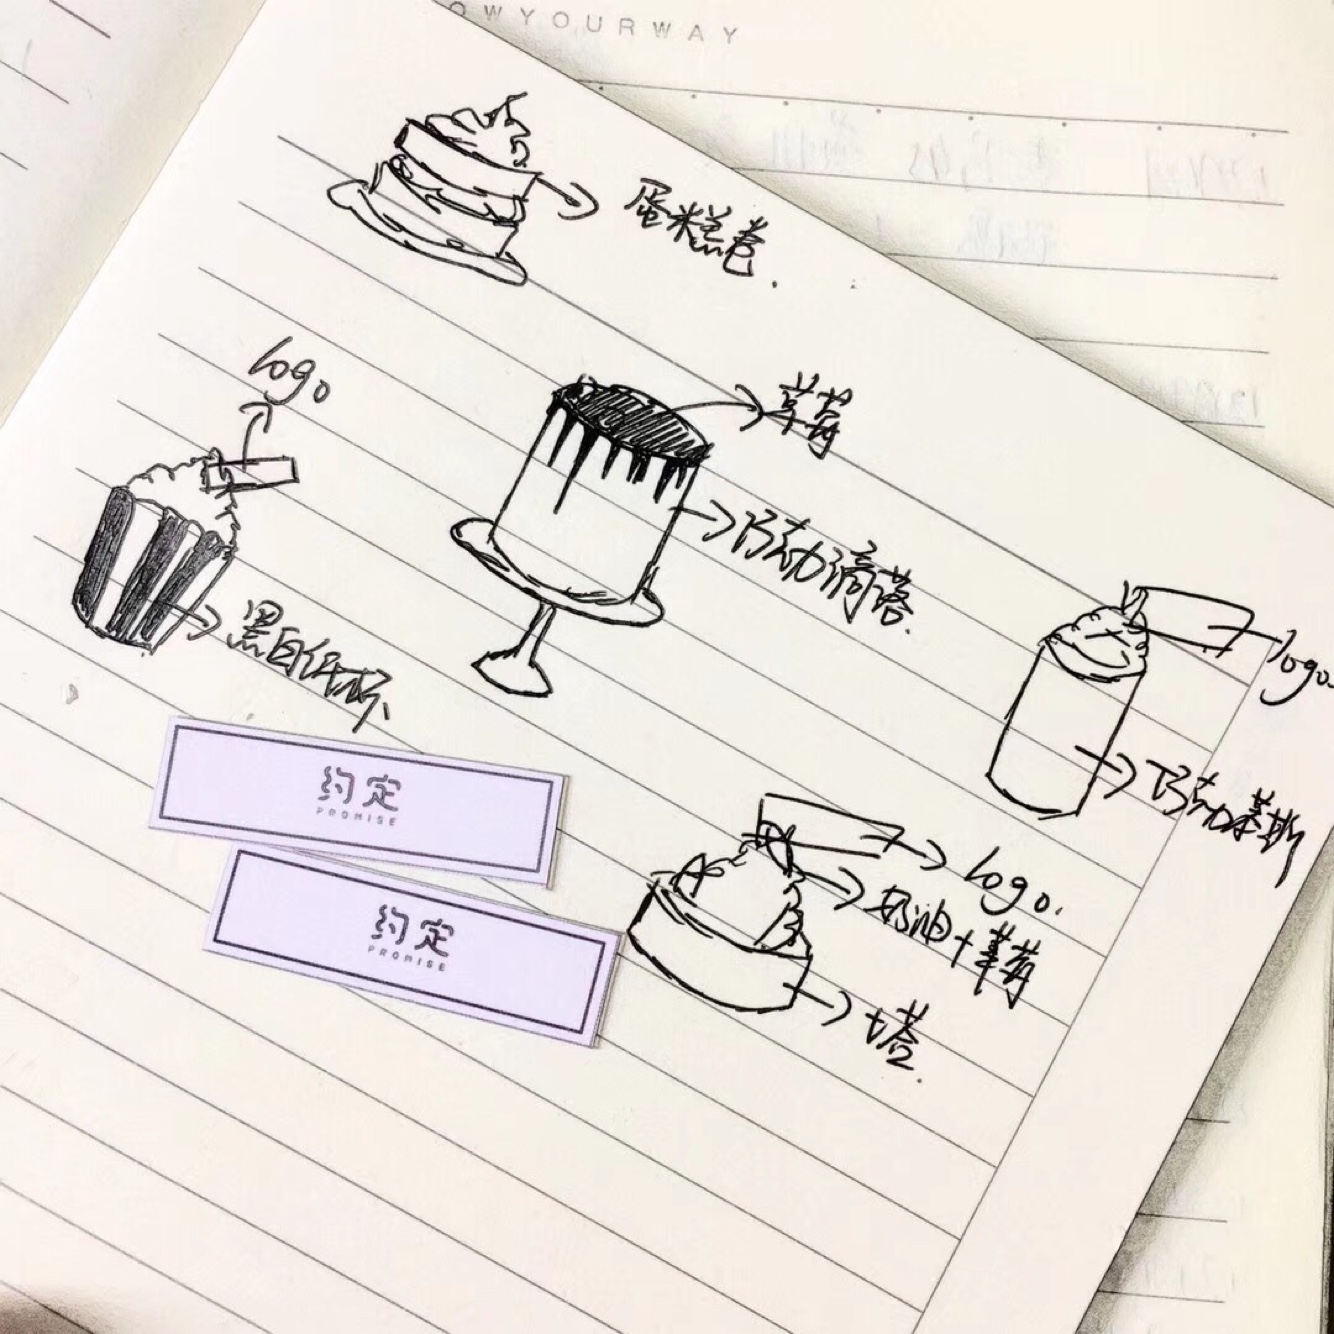 OWYOURWAY
蛋糕卷.
logo
草莓
巧克力滴落.
黑白纸杯
logo.
巧克力慕斯
约定
PROMISE
logo.
奶油+草莓
约定
PROMISE
t塔.